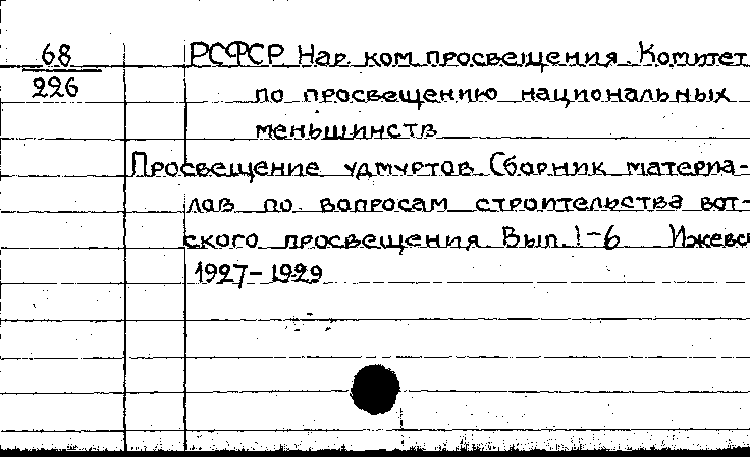 68
226
РСФСР Нар. ком. просвещения. Комитет
по просвещению национальных
меньшинств
Просвещение удмуртов. Сборник материа-
лов по вопросам строительства вот-
ского просвещения. Вып. 1-6 Ижевс
1927-1929